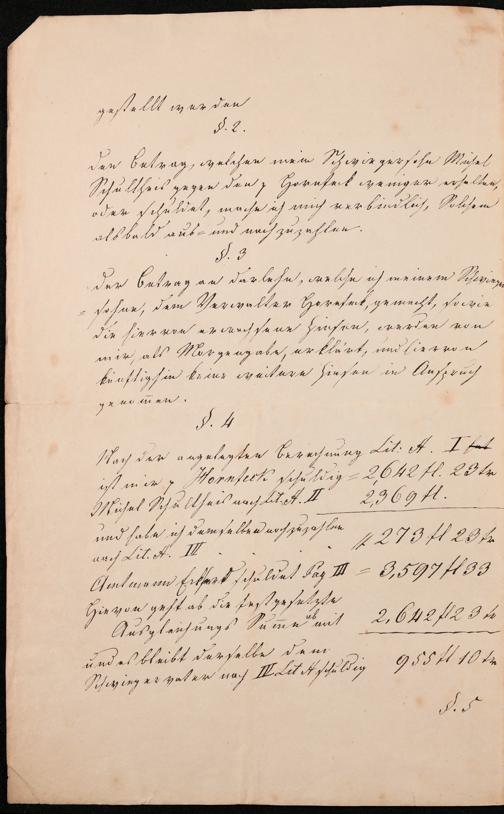 gestellt werden
§. 2.
den Betrag, welchen mein Schwiegersohn Michel
Schultheis gegen den p Hornfeck weniger erhalten,
oder schuldet, mache ich mich verbindlich, Solchem
alsbald aus= und nachzuzahlen.
§. 3
Der Betrag an Darlehn, welche ich meinem Schwieger
= sohne, dem Verwalter Hornfeck, gemacht, sowie
die hiervon erwachsene Zinsen, werden von
mir, als Morgengabe, erklärt, und hiervon
künftighin keine weitere Zinsen in Anspruch
genommen.
§. 4
Nach der angelegten Berechnung Lit: A. I
ist mir p Hornfeck schuldig = 2,642 fl. 23 kr
Michel Schultheis nach Lit. A. II 2,369 fl.
und habe ich demselben nachzuzahlen
nach Lit. A. III . . . 273 fl 23 kr
Amtmann schuldet Pag III = 3,597 fl 33
Hievon geht ab die festgesetzte
Ausgleichungs Summe ab mit 2,642 fl 23 kr
und es bleibt derselbe dem
Schwiegervater nach IV Lit A schuldig 955 fl 10 kr
§. 5